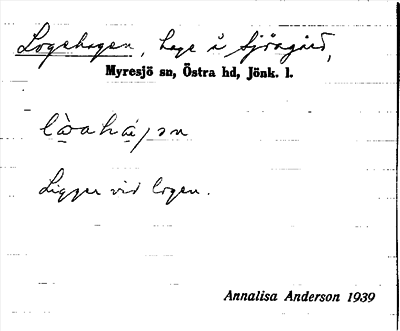 Logehagen, hage å Sjöagård,
Myresjö sn, Östra hd, Jönk. l.
Ligger vid logen.
Annalisa Anderson 1939